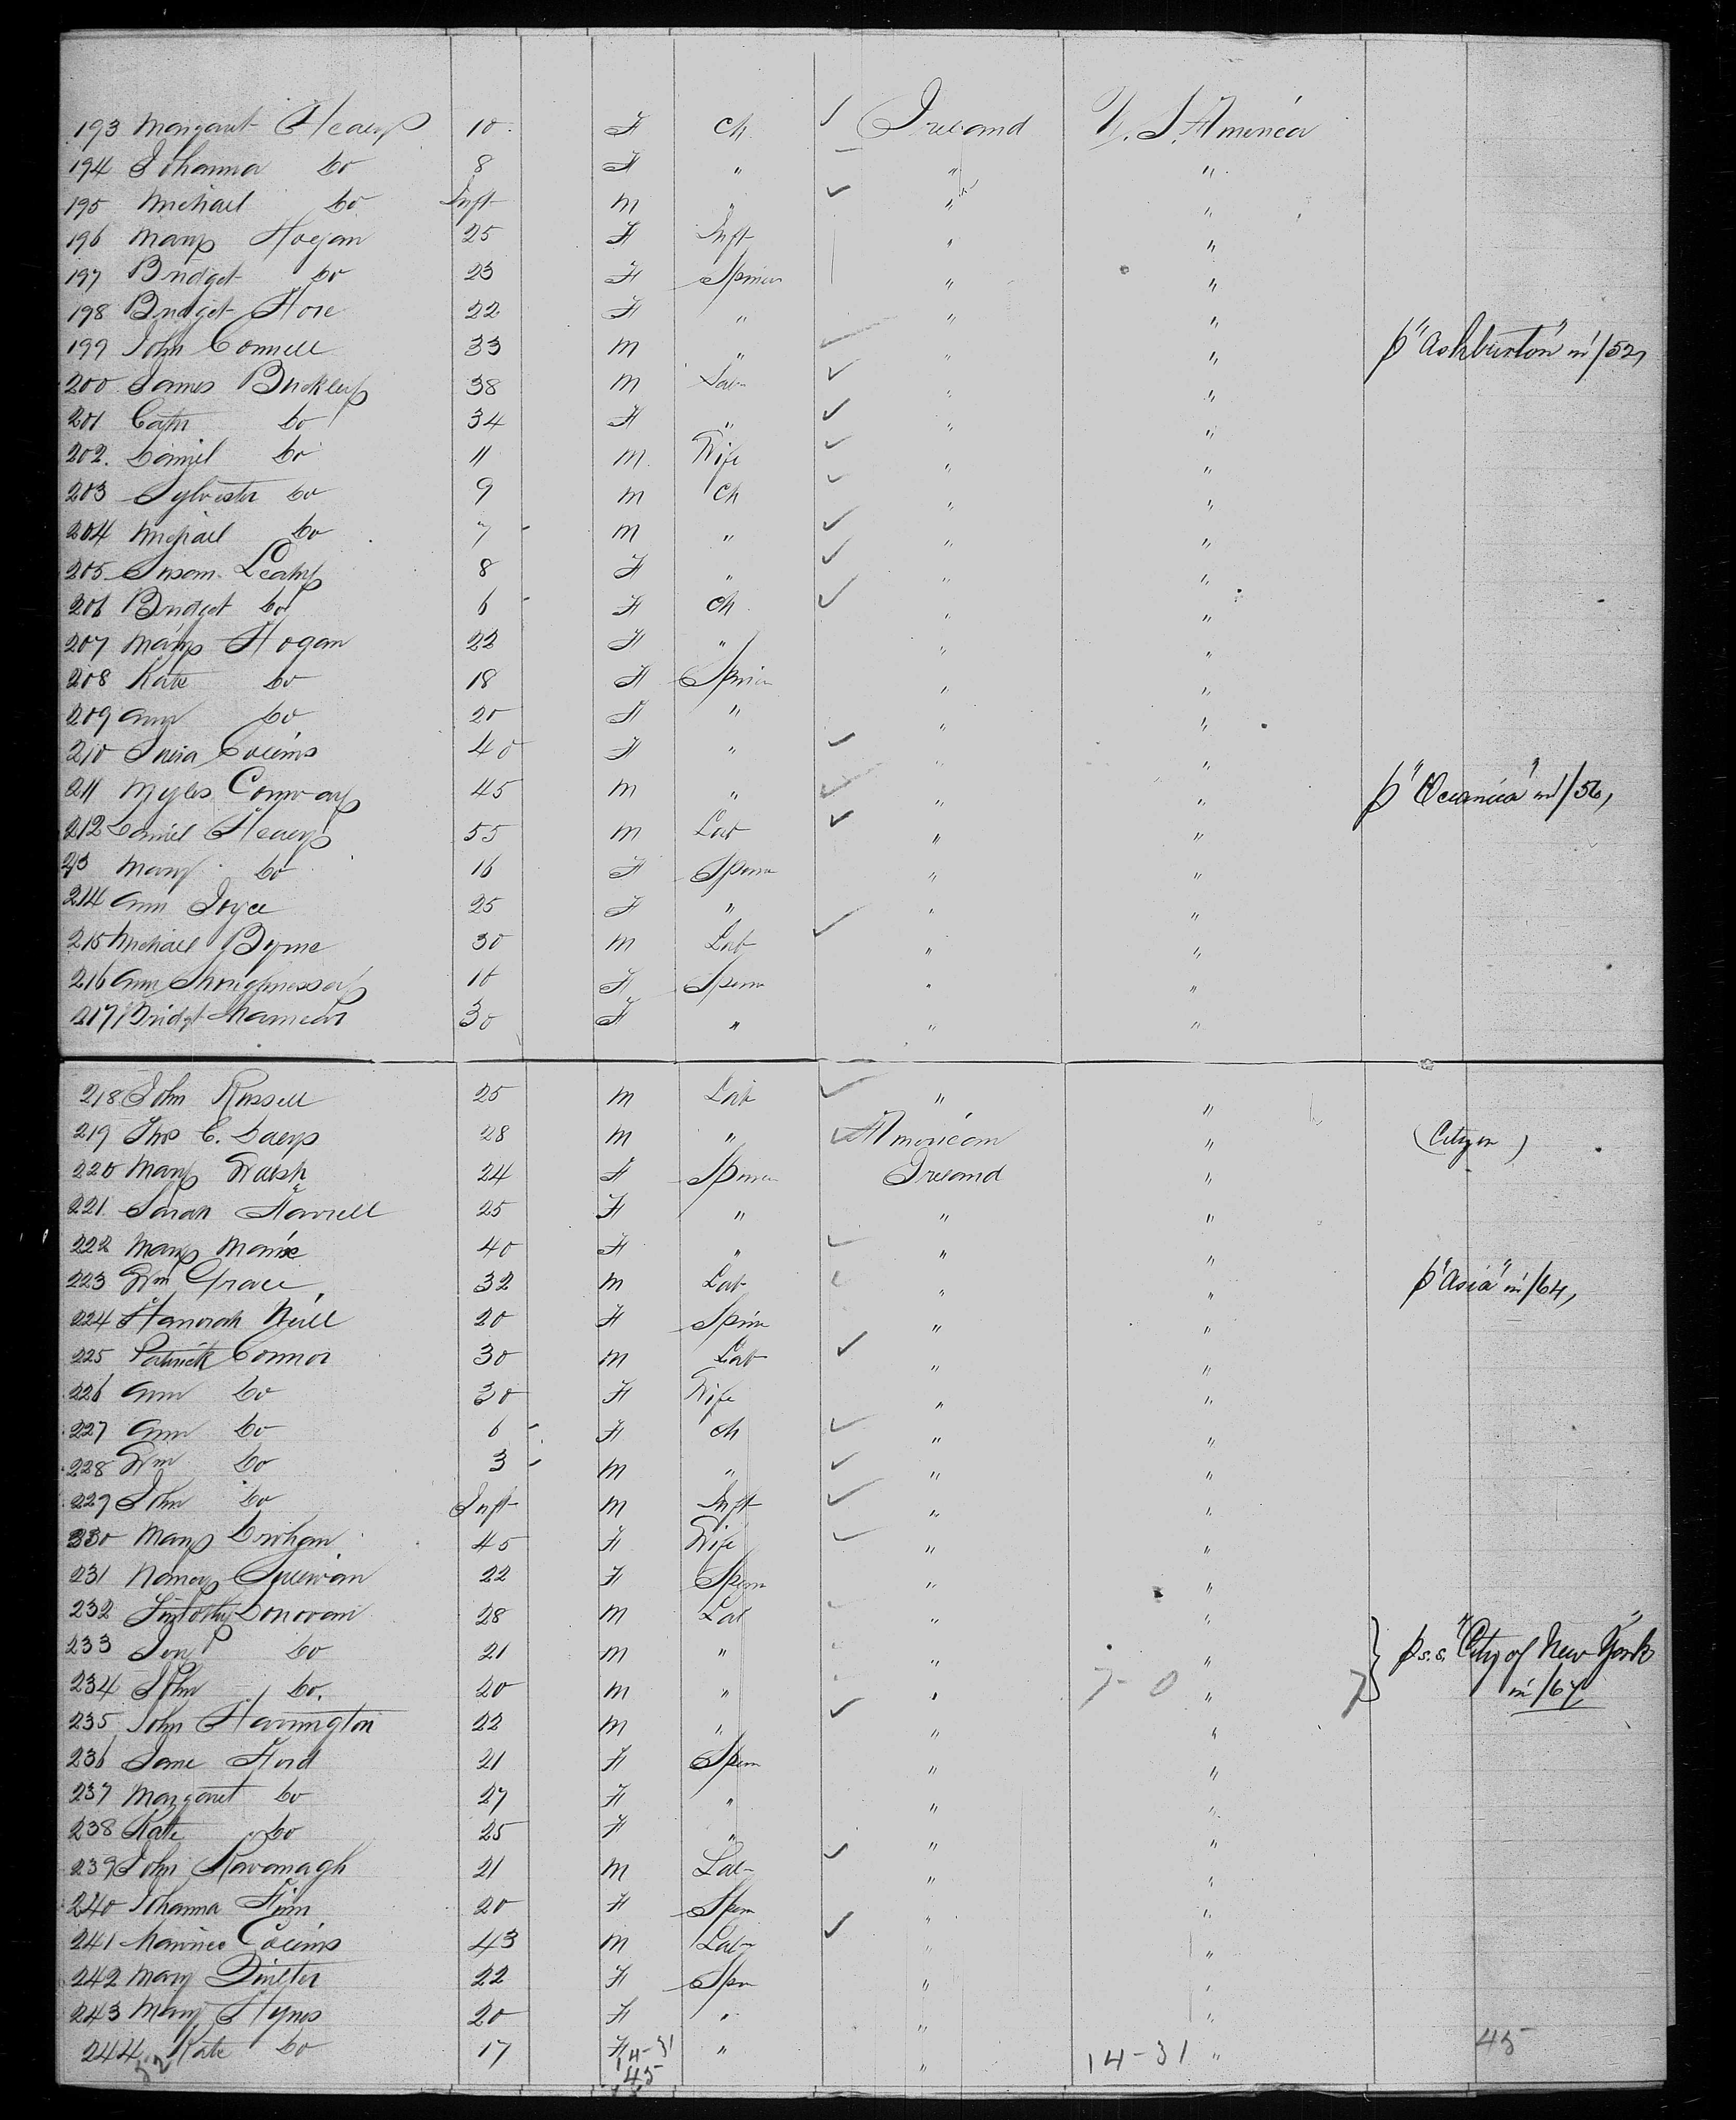 193 Margaret Healy 10 F Ch ✓ Ireland U. S. America
194 Johanna Do 8 F " " "
195 Michael Do Inft M " ✓ " "
196 Mary Hogan 25 F Inft " "
197 Bridget Do 23 F Spinsr " "
198 Bridget Hore 22 F " " "
199 John Connell 33 M " ✓ " " p "Ashburton" in /52,
200 James Buckley 38 M Lab ✓ " "
201 Cath Do 34 F " ✓ " "
202. Daniel Do 11 M. Wife ✓ " "
203 Sylvester Do 9 M Ch ✓ " "
204 Michael Do 7 M " ✓ " "
205 Susan Leahy 8 F " ✓ " "
206 Bridget Do 6 F Ch ✓ " "
207 Mary Hogan 22 F " " "
208 Kate Do 18 F Spinsr " "
209 Ann Do 20 F " " "
210 Collins 40 F " ✓ " "
211 Myles Conway 45 M " ✓ " " p "Oceanica" in /56,
212 Daniel Healy 55 M Lab ✓ " "
213 Mary Do 16 F Spinsr " "
214 Ann Joyce 25 F " " "
215 Michael Byrne 30 M Lab ✓ " "
216 Ann Shoughnessey 18 F Spinsr " "
217 Bridgt 30 F " " "
218 John Russell 25 M Lab ✓ " "
219 Thos C. Daly 28 M " ✓ American " (Citizen)
220 Mary Walsh 24 F Spinsr Ireland "
221. Sarah Farrell 25 F " " "
222 Mary 40 F " ✓ " "
223 Wm Grace 32 M Lab ✓ " " p "Asia" in /64,
224 Hanorah Neill 20 F Spin " "
225 Patrick Connor 30 M Lab ✓ " "
226 Ann Do 30 F Wife " "
227 Ann Do 6 F Ch ✓ " "
228 Wm Do 3 M " ✓ " "
229 John Do Inft M Inft ✓ " "
230 Mary Drohan 45 F Wife ✓ " "
231 Nancy Sullivan 22 F Spinr " "
232 Timothy Donovan 28 M Lab " "
233 Do 21 M " " " } p s.s. "City of New York"
234 John Do. 20 M " " 7-0 " 7 in /67
235 John Harrington 22 M " ✓ " "
236 Jane Ford 21 F Spinr " "
237 Margaret Do 27 F " " "
238 Kate Do 25 F " " "
239 John Kavanagh 21 M Lab ✓ " "
240 Johanna Finn 20 F Spinr " "
241 Maurice Collins 43 M Lab ✓ " "
242 Mary 22 F Spn " "
243 Mary Hynes 20 F " " "
244 Kate Do 17 F " " 14-31 " 45
32 14-31
45